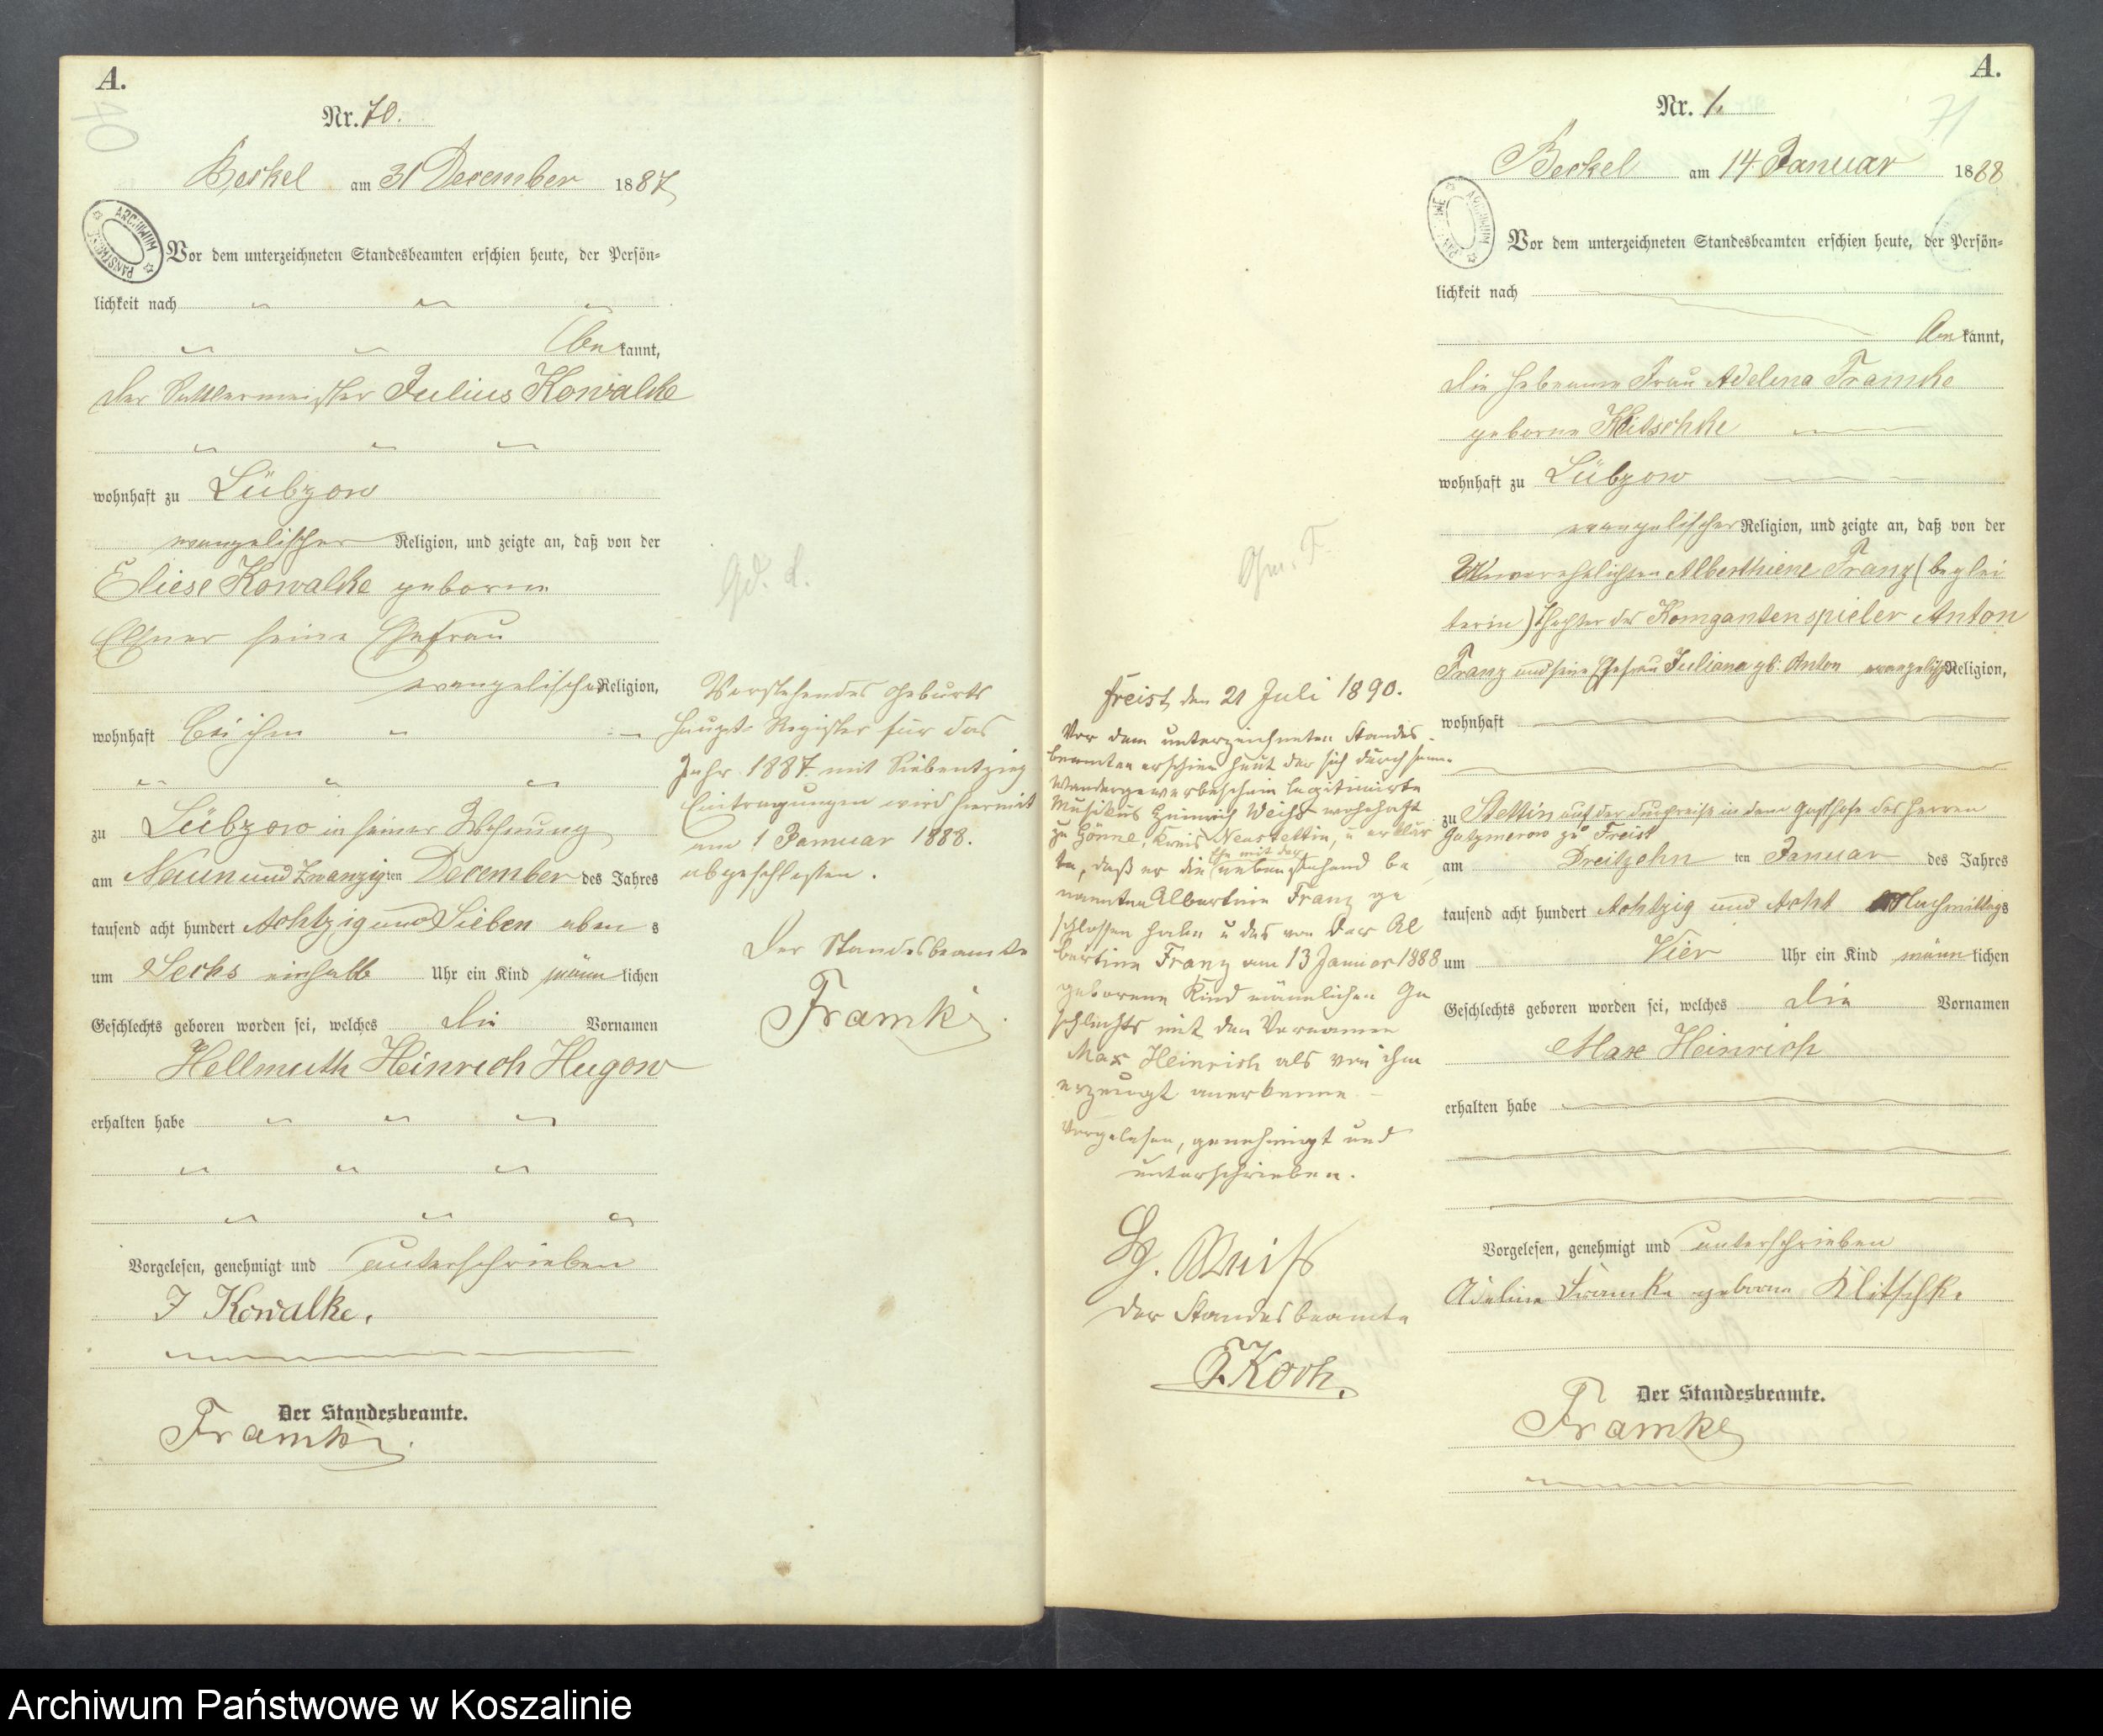 A.
40
Nr. 70.
Beckel am 31 December 1887
ARCHIWUM PAŃSTWOWE
Vor dem unterzeichneten Standesbeamten erschien heute, der Persön=
lichkeit nach
be kannt,
der Sattlermeister Julius Kowalke
wohnhaft zu Lübzow
evangelischer Religion, und zeigte an, daß von der
Eliese Kowalke geborne
seine Ehefrau
evangelischer Religion,
wohnhaft bei ihm
zu Lübzow in seiner Wohnung
am Neun und Zwanzig ten December des Jahres
tausend acht hundert Achtzig und Sieben aben s
um Sechs einhalb Uhr ein Kind männ lichen
Geschlechts geboren worden sei, welches die Vornamen
Hellmuth Heinrich Hugow
erhalten habe
Vorgelesen, genehmigt und unterschrieben
J Kowalke.
Der Standesbeamte.
Framke
Vorstehendes Geburts
Haupt-Register für das
Jahr 1887 mit Siebentzig
Eintragungen wird hiermit
am 1 Januar 1888.
abgeschlossen.
Der Standesbeamte
Framke
A.
71
Nr. 1.
Beckel am 14 Januar 1888
ARCHIWUM PAŃSTWOWE
Vor dem unterzeichneten Standesbeamten erschien heute, der Persön=
lichkeit nach
be kannt,
die Hebeamme Frau Adelina Framke
geborne Klitschke
wohnhaft zu Lübzow
evangelischer Religion, und zeigte an, daß von der
Unverehelichten Alberthiene Franz (beglei
terin) Tochter des Komgantenspieler Anton
Franz und seine Ehefrau Juliana gb. Anton evangelisch Religion,
wohnhaft
zu Stettin auf der durchreise in dem Gasthofe des Herren
Gatzmerow zu Freist
am Dreitzehn ten Januar des Jahres
tausend acht hundert Achtzig und Acht Nachmittags
um Vier Uhr ein Kind männ lichen
Geschlechts geboren worden sei, welches die Vornamen
Max Heinrich
erhalten habe
Vorgelesen, genehmigt und unterschrieben
Adeline Framke geborne Klitschke
Der Standesbeamte.
Framke
Freist, den 21 Juli 1890.
Vor dem unterzeichneten Standes-
beamten erschien heut der sich durch seinen
Wandergewerbeschein legitimirte
Musikus Heinrich Weiss wohnhaft
zu Hönne, Kreis Neustettin, u erklär
te, daß er die Ehe mit der nebenstehend be
nannten Albertine Franz ge
schlossen habe u das von der Al
bertine Franz am 13 Januar 1888
geborene Kind männlichen Ge
schlechts mit den Vornamen
Max Heinrich als von ihm
erzeugt anerkenne.
Vorgelesen, genehmigt und
unterschrieben.
Hg. Weiss
Der Standesbeamte
F. Koch.
Archiwum Państwowe w Koszalinie